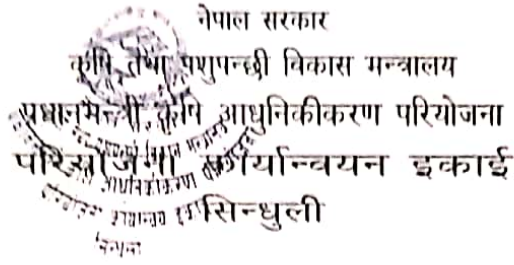 नेपाल सरकार
कृषि तथा पशुपन्छी विकास मन्त्रालय
प्रधानमन्त्री कृषि आधुनिकीकरण परियोजना
परियोजना कार्यान्वयन इकाई
सिन्धुली